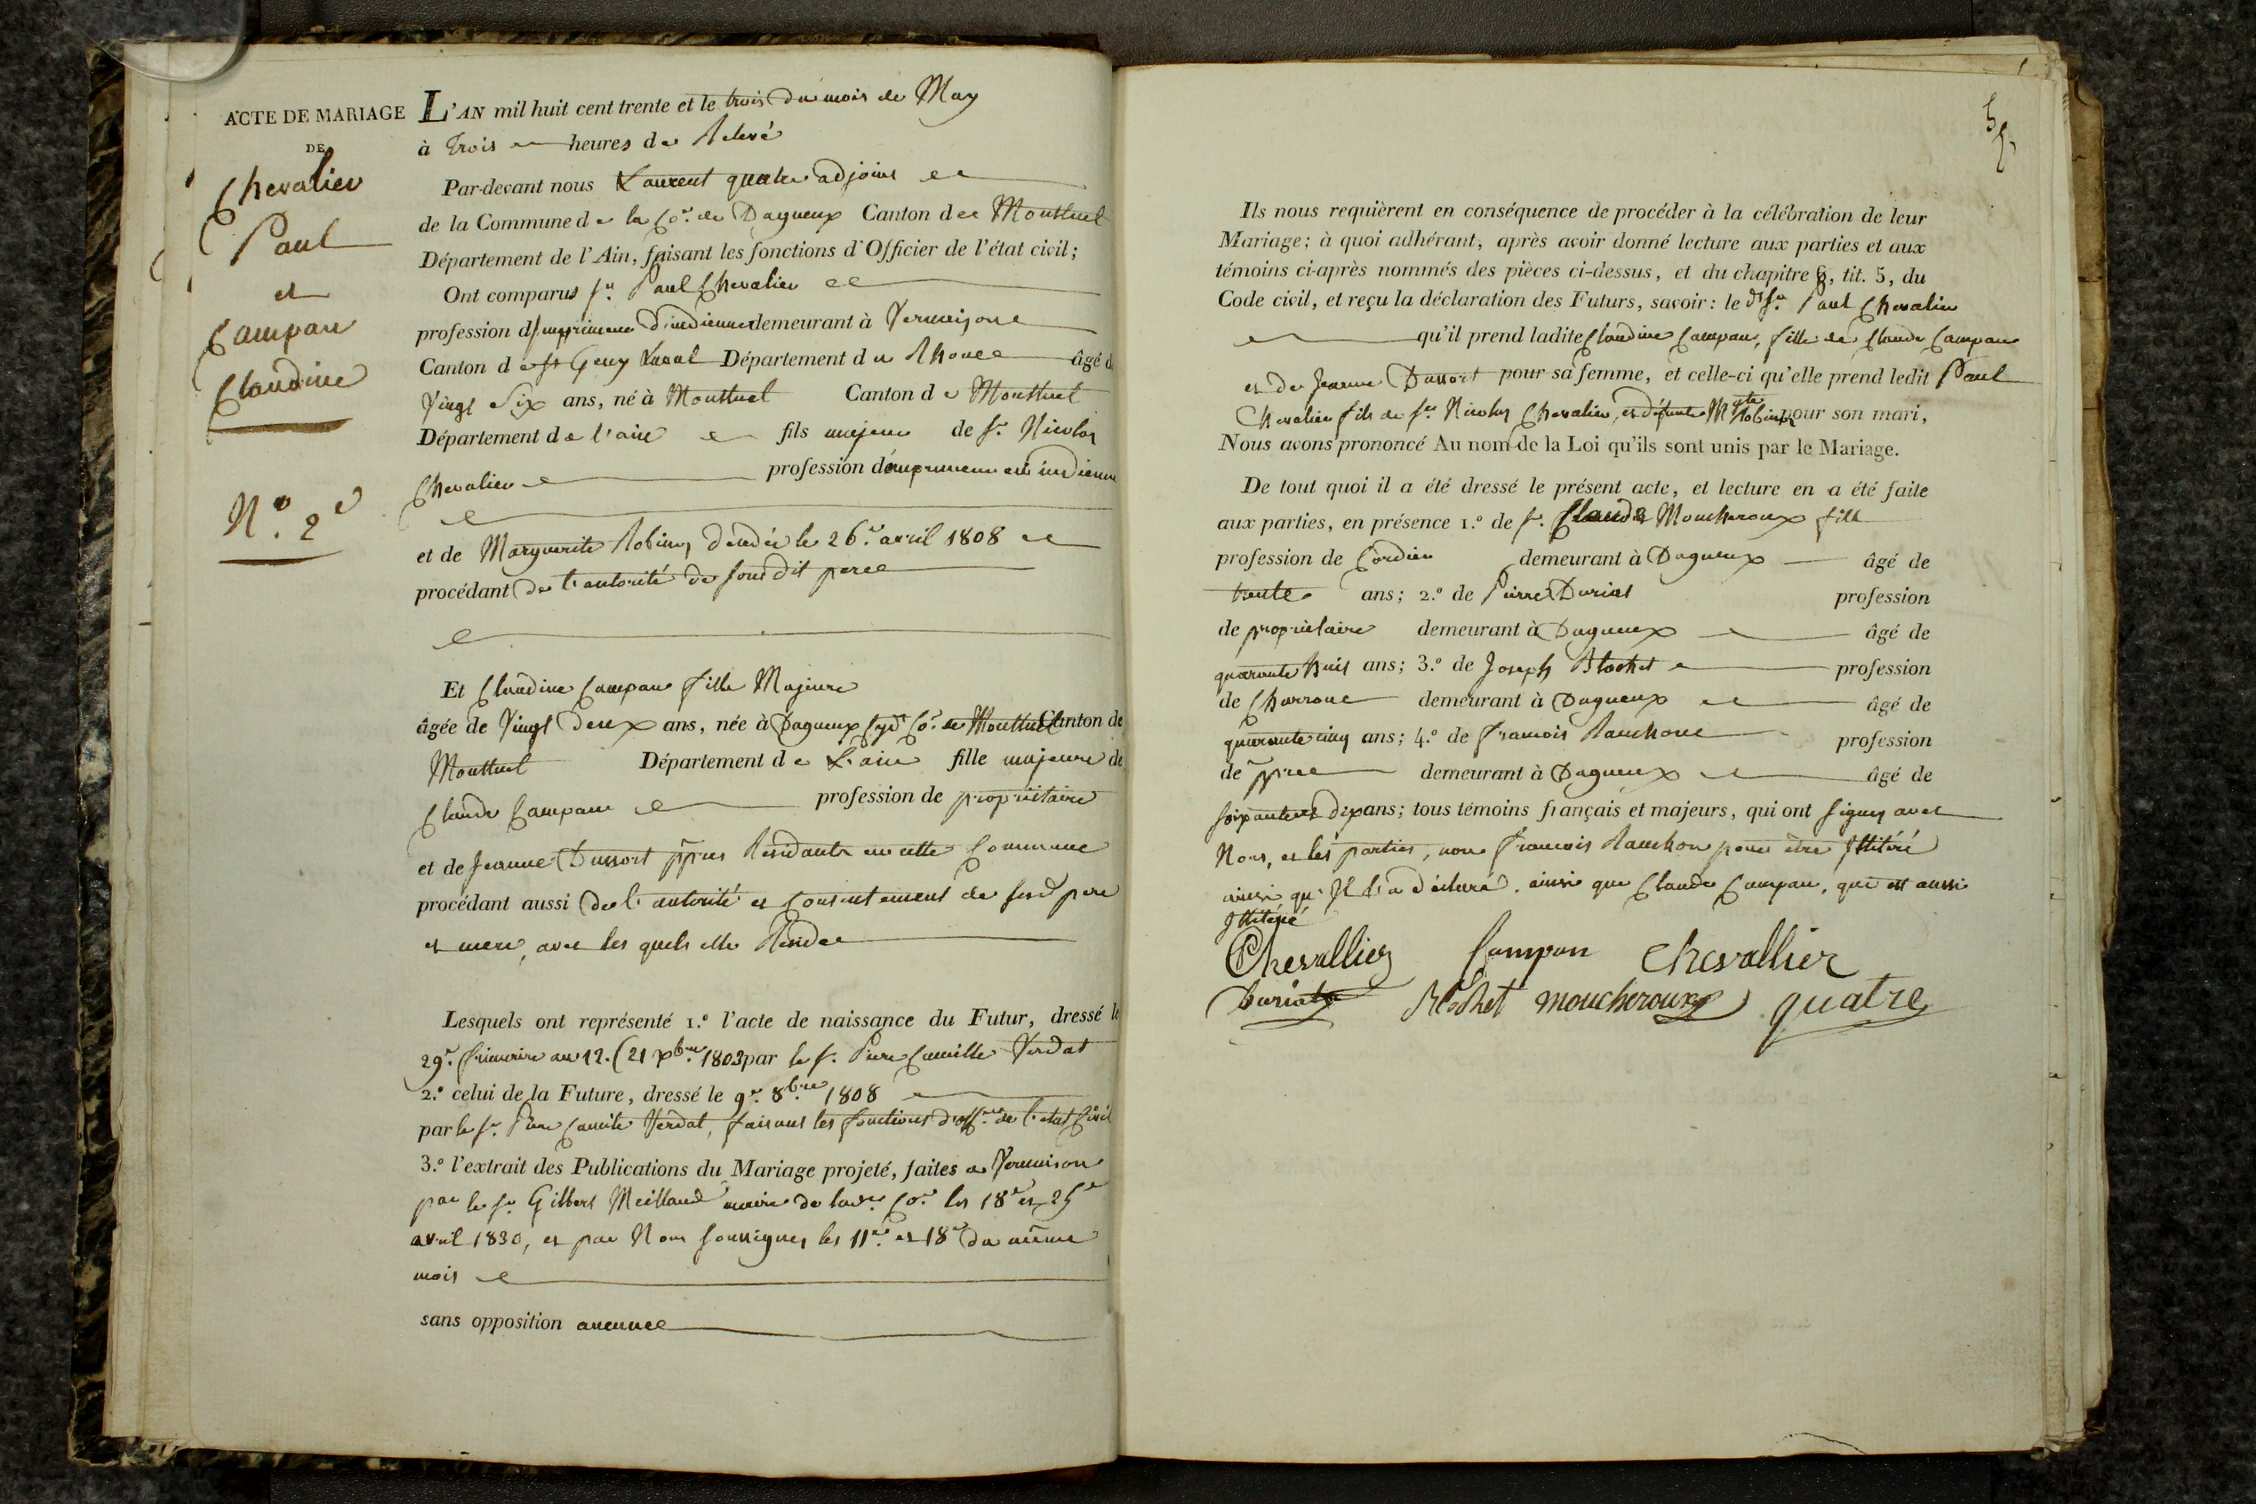 ACTE DE MARIAGE
DE
Chevalier
Paul
et
Campan
Claudine
N.º 2e
L'AN mil huit cent trente et le trois du mois de May
à trois heures de Relevé
Par-devant nous Laurent quatre adjoint
de la Commune de la Co.e de Dagneux Canton de Montluel
Département de l'Ain, faisant les fonctions d'Officier de l'état civil;
Ont comparus sr. Paul Chevalier
profession d'imprimeur d'indiennes demeurant à Vernaison
Canton de st Geny Laval Département du Rhone âgé de
Vingt Six ans, né à Montluel Canton de Montluel
Département de l'ain fils majeur de sr. Nicolas
Chevalier profession d'imprimeur en indienne
et de Marguerite Robin décédée le 26e. avril 1808
procédant de l'autorité de sondit pere
Et Claudine Campan fille Majeure
âgée de Vingt deux ans, née à Dagneux Co.e de Montluel Canton de
Montluel Département de L'ain fille majeure de
Claude Campan profession de propriétaire
et de Jeanne Dussort ppres Résidants en cette Commune
procédant aussi de l'autorité et consentement de sesd pere
et mere, avec les quels elle Réside
Lesquels ont représenté 1.º l'acte de naissance du Futur, dressé le
29e. frimaire an 12. (21 xbre. 1803 par le sr. Pierre Camille Verdat
2.º celui de la Future, dressé le 9e. 8bre 1808
par le sr. Pierre Camille Verdat, faisant les fonctions d'offer. de l'etat Civil
3.º l'extrait des Publications du Mariage projeté, faites a Vernaison
par le sr. Gilbert Meillaud maire de lade. Co.e les 18e et 25e
avril 1830, et par Nous soussignés les 11e. et 18e du même
mois
sans opposition aucune
5
Ils nous requièrent en conséquence de procéder à la célébration de leur
Mariage; à quoi adhérant, après avoir donné lecture aux parties et aux
témoins ci-après nommés des pièces ci-dessus, et du chapitre 6, tit. 5, du
Code civil, et reçu la déclaration des Futurs, savoir: le dt sr. Paul Chevalier
qu'il prend ladite Claudine Campan, fille de Claude Campan
et de Jeanne Dussort pour sa femme, et celle-ci qu'elle prend ledit Paul
Chevalier fils de sr. Nicolas Chevalier, et défunte Mgte Robin pour son mari,
Nous avons prononcé Au nom de la Loi qu'ils sont unis par le Mariage.
De tout quoi il a été dressé le présent acte, et lecture en a été faite
aux parties, en présence 1.º de sr. Claude Moucheroux fils
profession de Cordier demeurant à Dagneux âgé de
trente ans; 2.º de Pierre Duriat profession
de propriétaire demeurant à Dagneux âgé de
quarante huit ans; 3.º de Joseph Blochet profession
de Charron demeurant à Dagneux âgé de
quarante cinq ans; 4.º de francois Rauchon profession
de ppre demeurant à Dagneux âgé de
soixante et dix ans; tous témoins français et majeurs, qui ont signés avec
Nous, et les parties, non francois Rauchon pour être Illitéré
ainsi qu'Il l'a déclaré. ainsi que Claude Campan, qui est aussi
Illitéré
Chevallier Campan Chevallier
Duriat Blochet moucheroux quatre